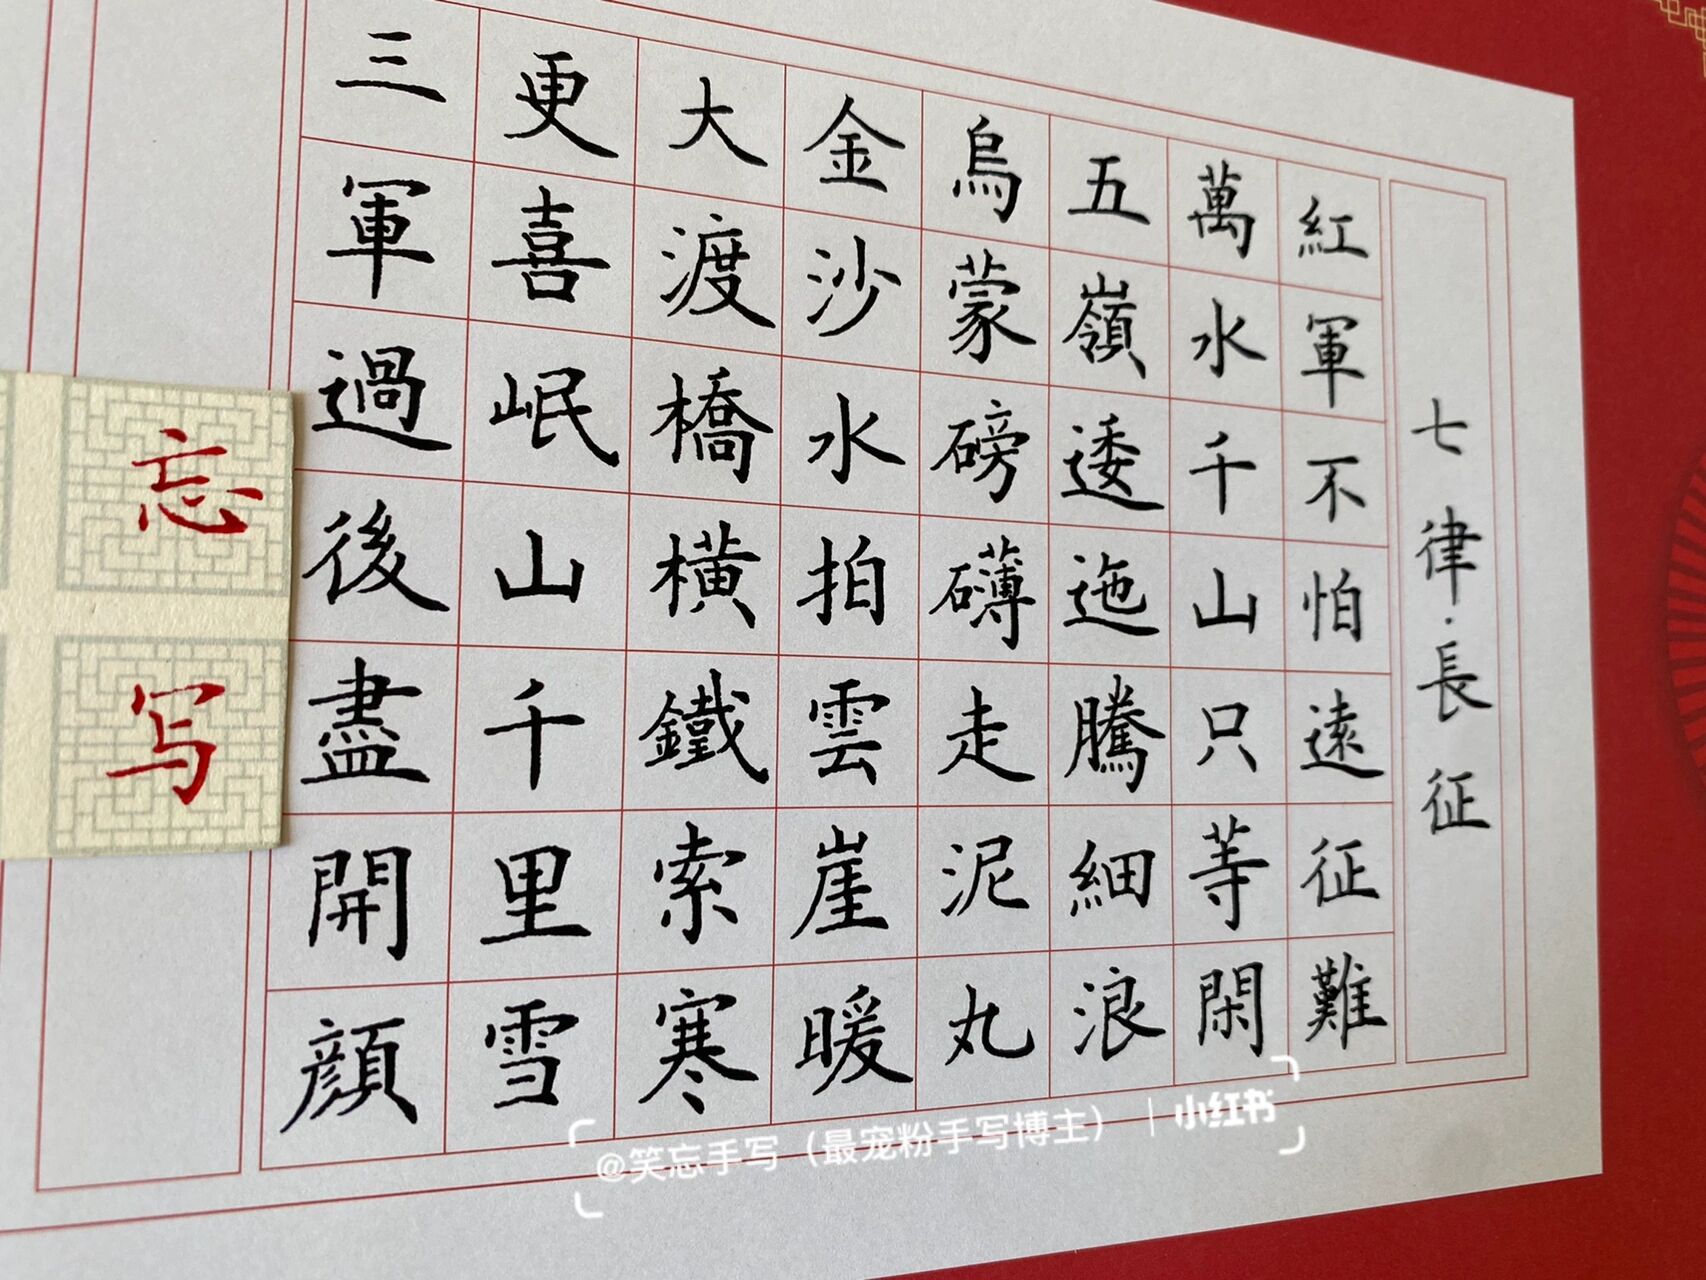 七律·長征
紅軍不怕遠征難
萬水千山只等閑
五嶺逶迤騰細浪
烏蒙磅礴走泥丸
金沙水拍雲崖暖
大渡橋橫鐵索寒
更喜岷山千里雪
三軍過後盡開顔
忘
写
@笑忘手写（最宠粉手写博主）｜小红书